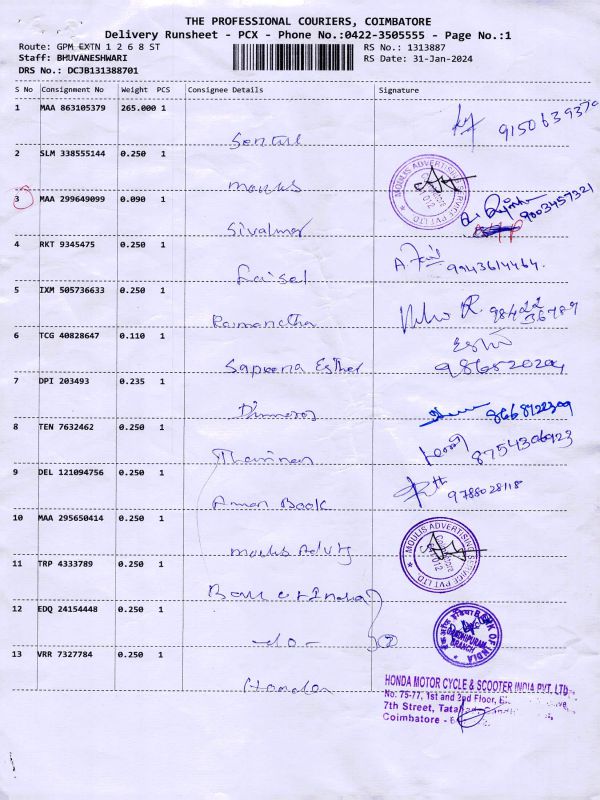 THE PROFESSIONAL COURIERS, COIMBATORE
Delivery Runsheet - PCX - Phone No.:0422-3505555 - Page No.:1
Route: GPM EXTN 1 2 6 8 ST
RS No.: 1313887
Staff: BHUVANESHWARI
RS Date: 31-Jan-2024
DRS No.: DCJB131388701
S No Consignment No Weight PCS Consignee Details Signature
1 MAA 863105379 265.000 1
Senthil 9150639370
2 SLM 338555144 0.250 1
Moulis
MOULIS ADVERTISING SERVICE PVT LTD
3 MAA 299649099 0.090 1
9003457321
4 RKT 9345475 0.250 1
Faisal 9943614464.
5 IXM 505736633 0.250 1
Ramanatha R. 98422 36789
6 TCG 40828647 0.110 1
Sapeena Esther Esther 9865202094
7 DPI 203493 0.235 1
8668122309
8 TEN 7632462 0.250 1
8754306923
9 DEL 121094756 0.250 1
Aman Book 9788028118
10 MAA 295650414 0.250 1
Moulis Advtg
MOULIS ADVERTISING SERVICE PVT LTD
11 TRP 4333789 0.250 1
Bank of India
12 EDQ 24154448 0.250 1
-do- 2
BANK OF INDIA
GANDHIPURAM
BRANCH
13 VRR 7327784 0.250 1
Honda
HONDA MOTOR CYCLE & SCOOTER INDIA PVT. LTD
No. 75-77, 1st and 2nd Floor,
7th Street,
Coimbatore - 6